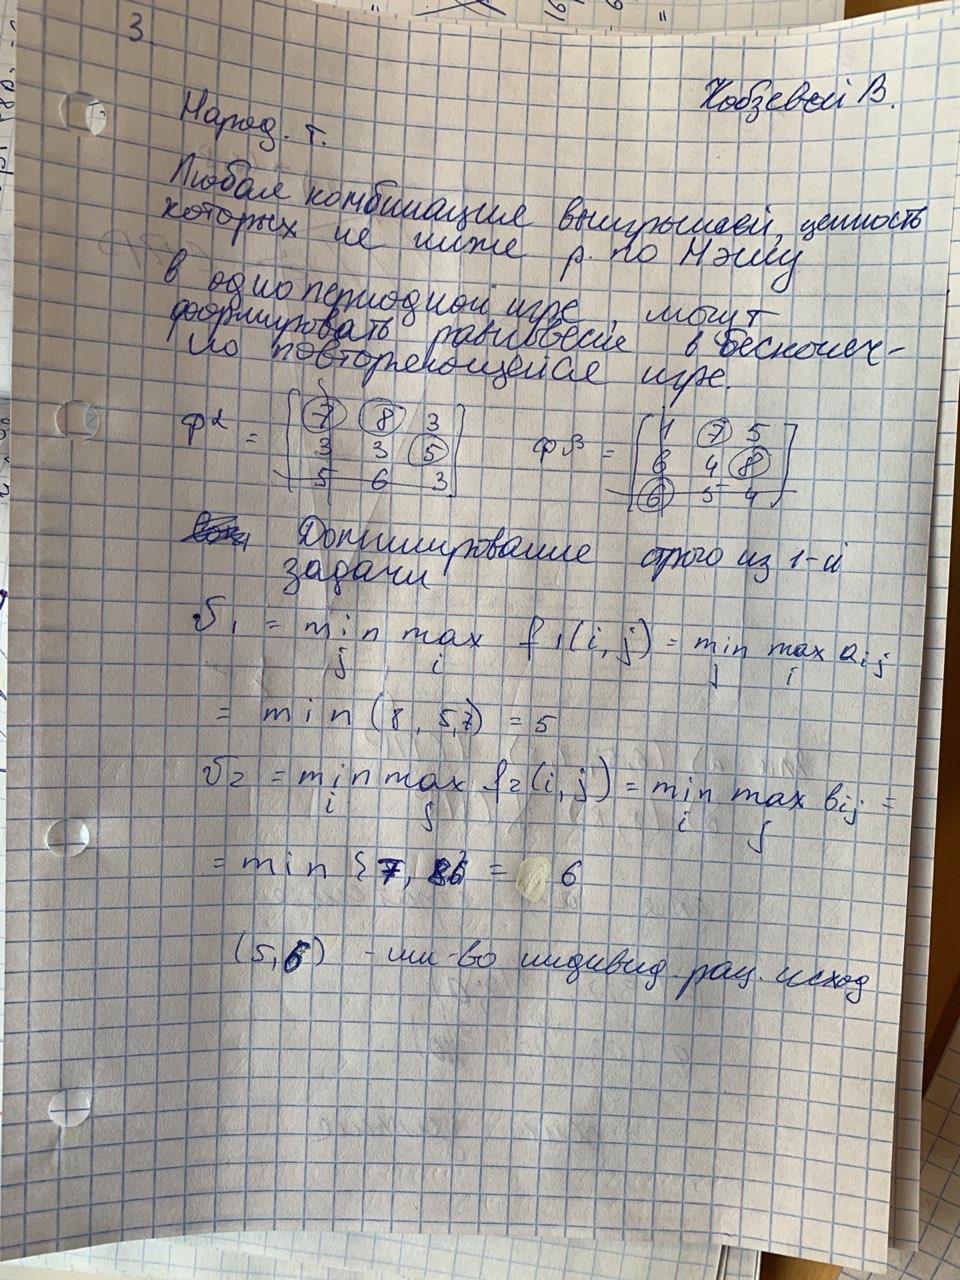 3.
Кобзевой В.
Народ. т.
Любая комбинация выигрышей, ценность
которых не ниже р. по Нэшу
в однопериодной игре, могут
формировать равновесие в бесконеч-
но повторяющейся игре.
φα = [ 7 8 3
3 3 5
5 6 3 ]
φβ = [ 1 7 5
6 4 8
6 5 4 ]
Доминирование строго из 1-й
задачи
v1 = min max f1(i, j) = min max aij
j i j i
= min (8, 5,7) = 5
v2 = min max f2(i, j) = min max bij =
i j i j
= min {7, 8 6 = 6
(5,6) - мн-во индивид. рац. исход